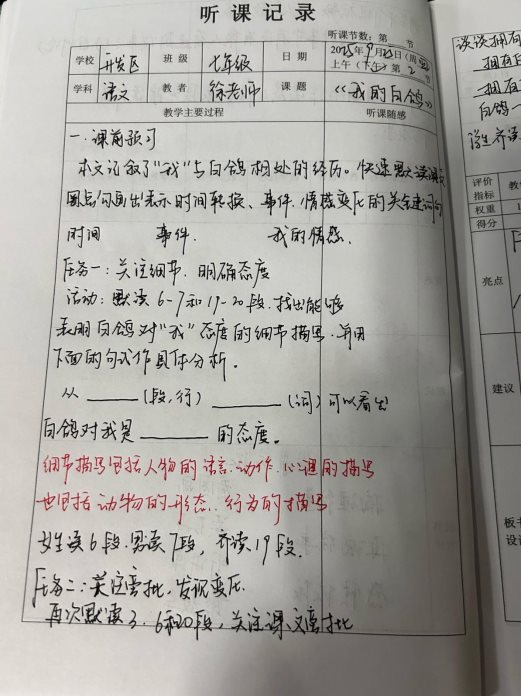 听课记录
听课节数：第 节
学校 开发区 班级 七年级 日期 2025年9月23日(周
上午(下午)第2节
学科 语文 教者 徐老师 课题 《我的白鸽》
教学主要过程 听课随感
一.课前预习
本文记叙了"我"与白鸽相处的经历。快速默读课文
圈点勾画出表示时间转换、事件、情感变化的关键词句
时间 事件. 我的情感.
任务一：关注细节.明确态度
活动：默读6-7和19-20段.找出能够
表明白鸽对"我"态度的细节描写.并用
下面的句式作具体分析。
从____(段,行)____(词)可以看出
白鸽对我是____的态度。
细节描写包括人物的语言.动作.心理的描写
也包括动物的形态.行为的描写
女生读6段.男读7段，齐读19段.
任务二：关注旁批,发现变化
再次默读3、6和20段，关注课文旁批
谈谈拥有
拥有白
拥有
白鸽一
学生齐读
评价
指标
权重 1
得分
亮点
建议
板书
设计